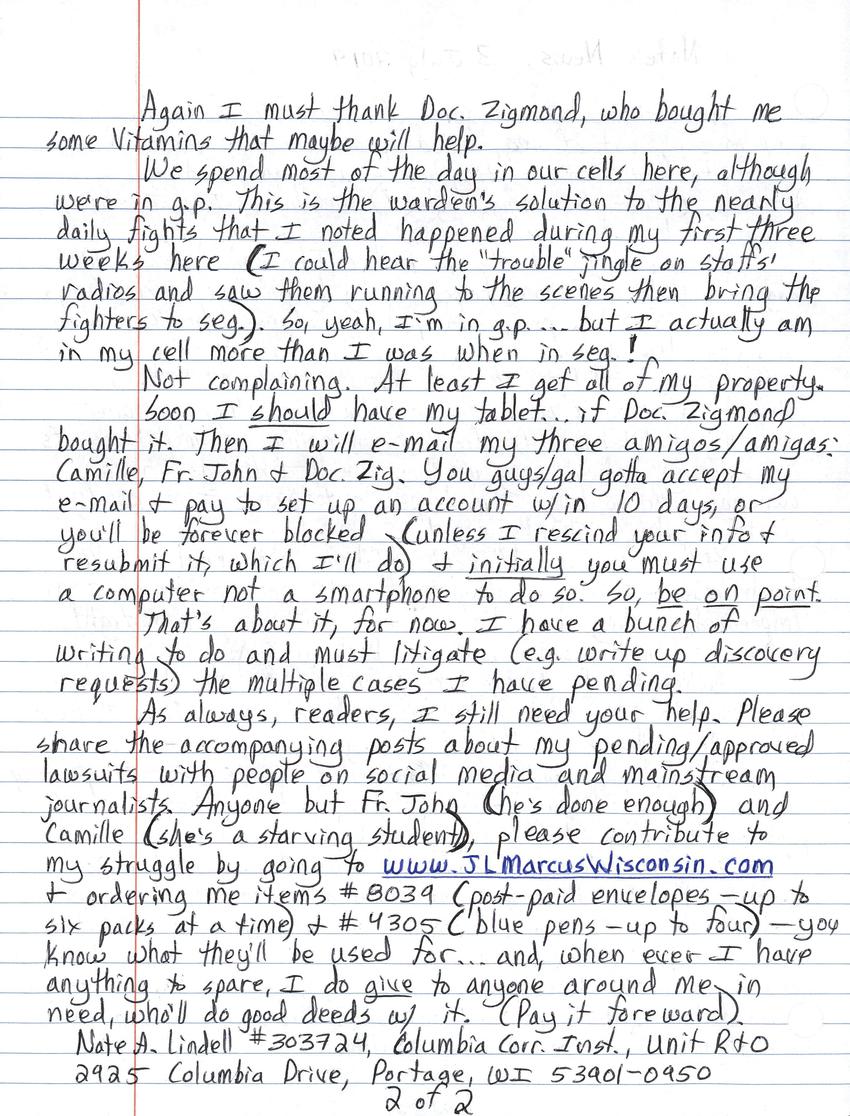 Again I must thank Doc. Zigmond, who bought me
some Vitamins that maybe will help.
We spend most of the day in our cells here, although
we're in g.p. This is the warden's solution to the nearly
daily fights that I noted happened during my first three
weeks here (I could hear the "trouble" jingle on staffs'
radios and saw them running to the scenes then bring the
fighters to seg.). So, yeah, I'm in g.p.... but I actually am
in my cell more than I was when in seg.!
Not complaining. At least I get all of my property.
Soon I should have my tablet... if Doc. Zigmond
bought it. Then I will e-mail my three amigos/amigas:
Camille, Fr. John & Doc. Zig. You guys/gal gotta accept my
e-mail & pay to set up an account w/in 10 days, or
you'll be forever blocked (unless I rescind your info &
resubmit it, which I'll do) & initially you must use
a computer not a smartphone to do so. So, be on point.
That's about it, for now. I have a bunch of
writing to do and must litigate (e.g. write up discovery
requests) the multiple cases I have pending.
As always, readers, I still need your help. Please
share the accompanying posts about my pending/approved
lawsuits with people on social media and mainstream
journalists. Anyone but Fr. John (he's done enough) and
Camille (she's a starving student), please contribute to
my struggle by going to www.JLMarcusWisconsin.com
& ordering me items #8039 (post-paid envelopes – up to
six packs at a time) & #4305 (blue pens – up to four) – you
know what they'll be used for... and, when ever I have
anything to spare, I do give to anyone around me, in
need, who'll do good deeds w/ it. (Pay it foreward).
Nate A. Lindell #303724, Columbia Corr. Inst., Unit R&O
2925 Columbia Drive, Portage, WI 53901-0950
2 of 2